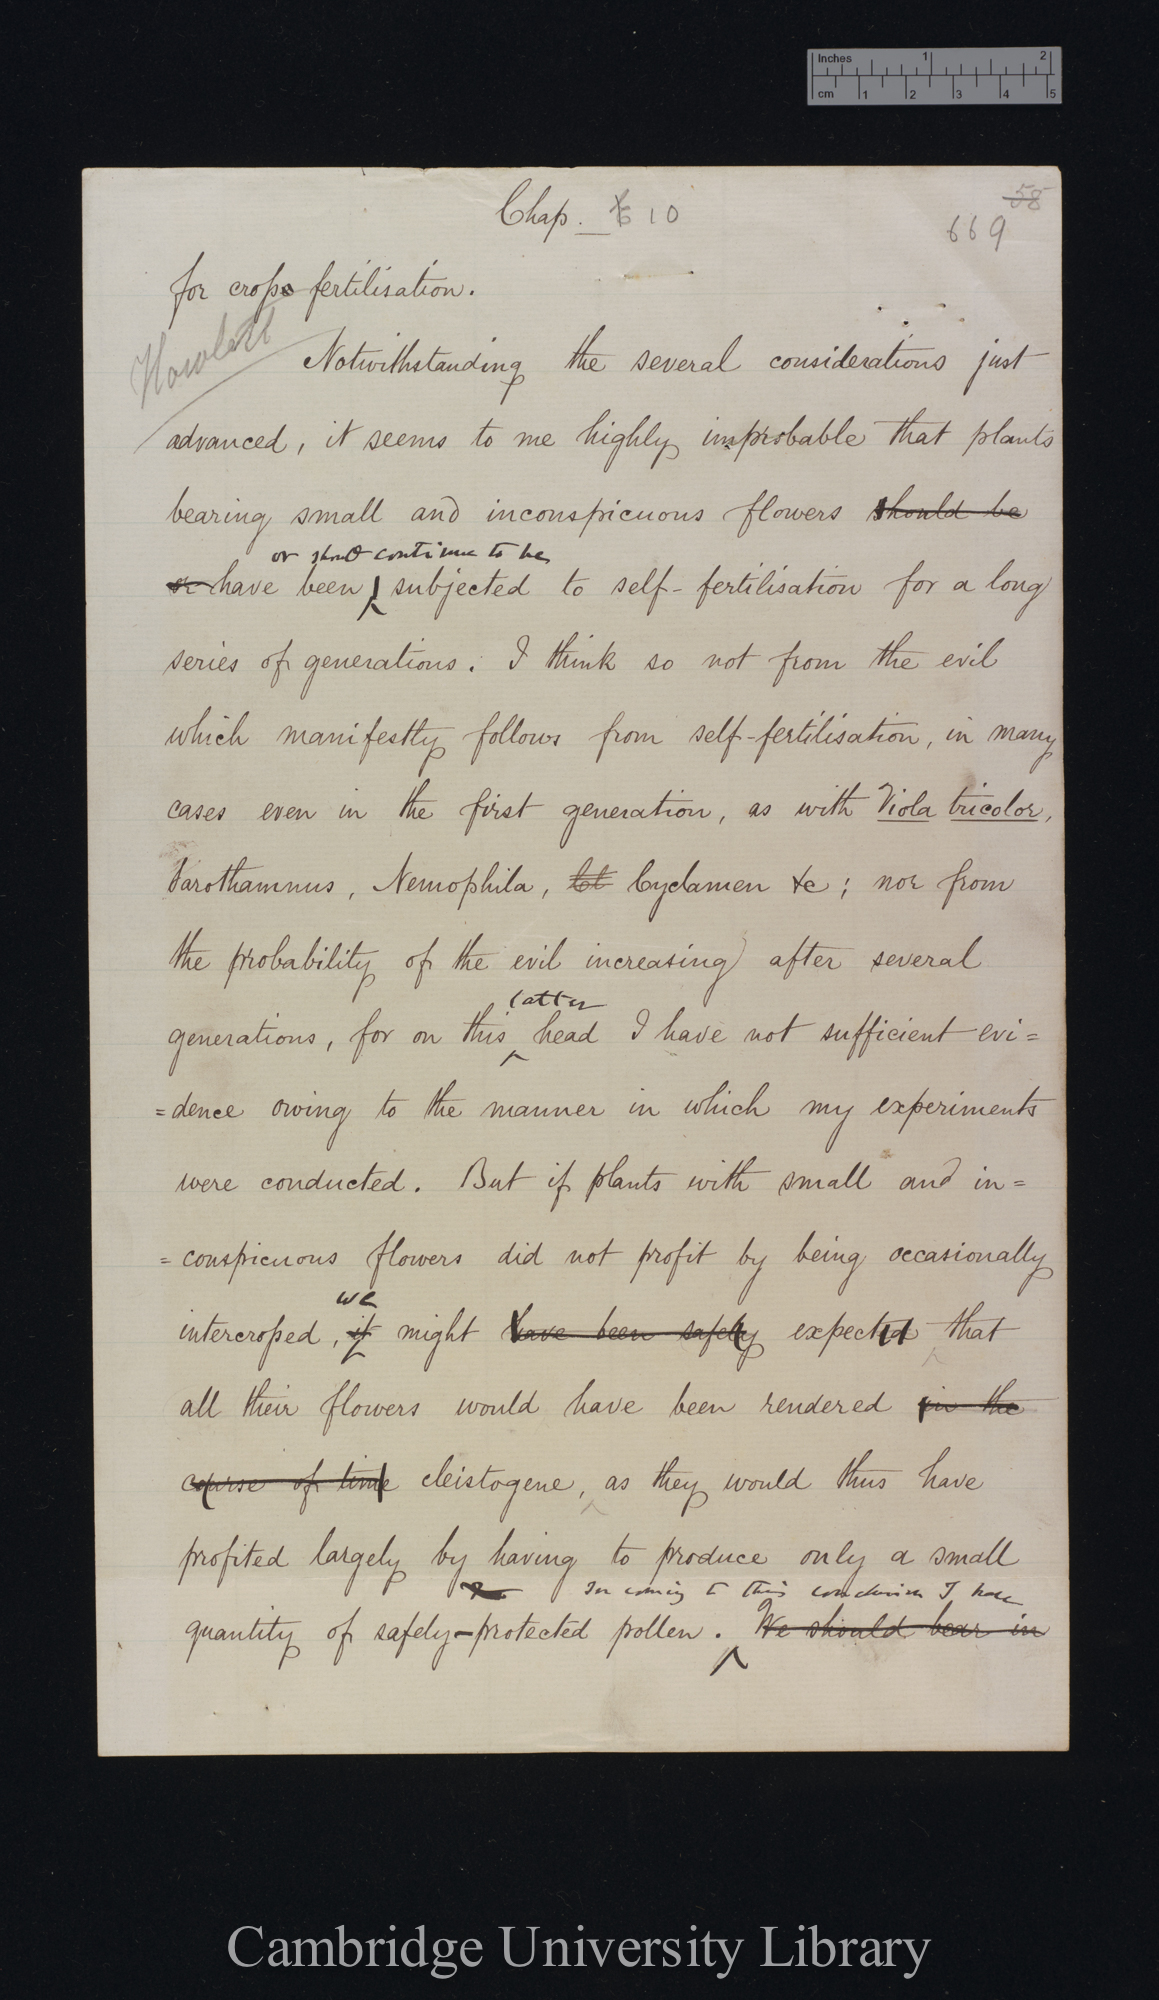 Inches 1 2
cm 1 2 3 4 5
58
Chap. 6 10
669
for cross fertilisation.
Howlett
Notwithstanding the several considerations just
advanced, it seems to me highly improbable that plants
bearing small and inconspicuous flowers should be
or should continue to be
or have been subjected to self-fertilisation for a long
series of generations. I think so not from the evil
which manifestly follows from self-fertilisation, in many
cases even in the first generation, as with Viola tricolor,
Sarothamnus, Nemophila, Cyclamen &c; nor from
the probability of the evil increasing after several
latter
generations, for on this head I have not sufficient evi=
=dence owing to the manner in which my experiments
were conducted. But if plants with small and in=
=conspicuous flowers did not profit by being occasionally
we
intercrossed, it might have been safely expected that
all their flowers would have been rendered in the
course of time cleistogene, as they would thus have
profited largely by having to produce only a small
In coming to this conclusion I have
quantity of safely-protected pollen. We should bear in
Cambridge University Library